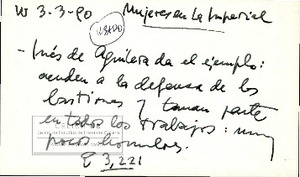 W 3-3-90 Mujeres en La Imperial
USADO
- Inés de Aguilera da el ejemplo:
acuden a la defensa de los
bastiones y toman parte
en todos los trabajos: muy
pocos hombres.
E 3,221